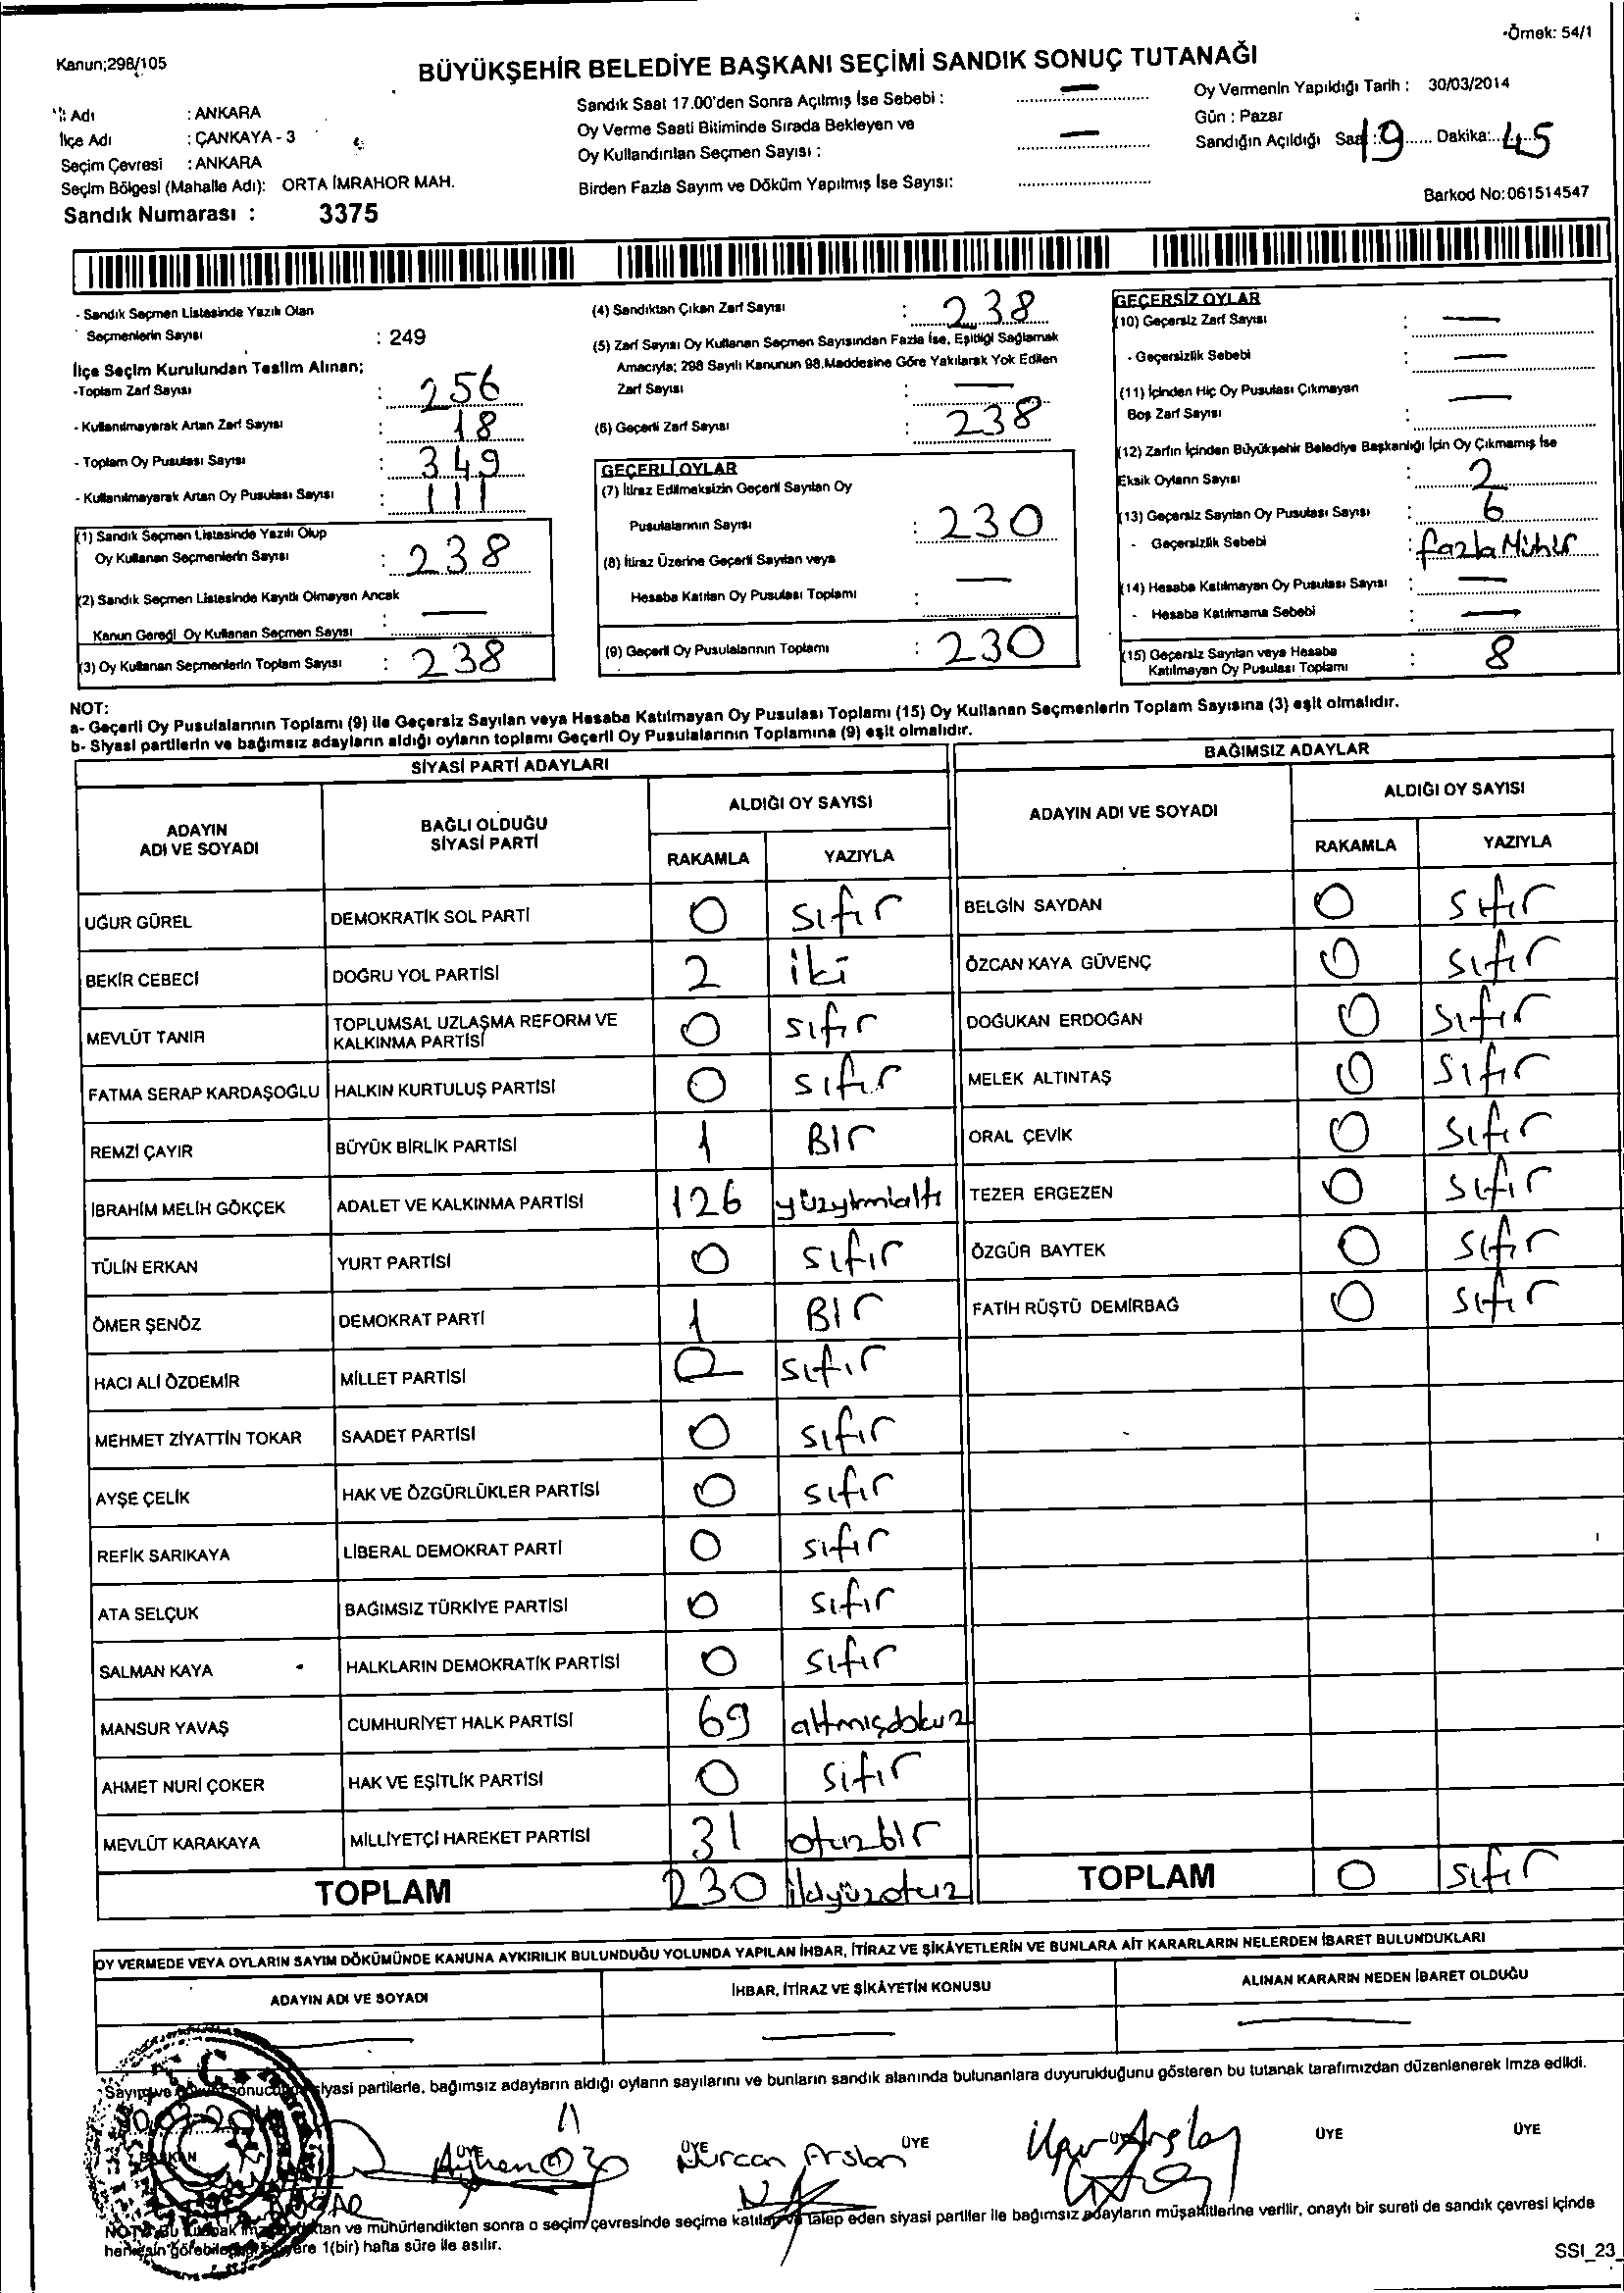 Örnek: 54/1
Kanun;298/105
BÜYÜKŞEHİR BELEDİYE BAŞKANI SEÇİMİ SANDIK SONUÇ TUTANAĞI
Adı : ANKARA
İlçe Adı : ÇANKAYA - 3
Seçim Çevresi : ANKARA
Seçim Bölgesi (Mahalle Adı): ORTA İMRAHOR MAH.
Sandık Numarası : 3375
Sandık Saat 17.00'den Sonra Açılmış İse Sebebi : —
Oy Verme Saati Bitiminde Sırada Bekleyen ve
Oy Kullandırılan Seçmen Sayısı : —
Birden Fazla Sayım ve Döküm Yapılmış İse Sayısı:
Oy Vermenin Yapıldığı Tarih : 30/03/2014
Gün : Pazar
Sandığın Açıldığı Saat : 19 Dakika: 45
Barkod No:061514547
- Sandık Seçmen Listesinde Yazılı Olan
Seçmenlerin Sayısı : 249
İlçe Seçim Kurulundan Teslim Alınan;
-Toplam Zarf Sayısı : 256
- Kullanılmayarak Artan Zarf Sayısı : 18
- Toplam Oy Pusulası Sayısı : 349
- Kullanılmayarak Artan Oy Pusulası Sayısı : 111
(1) Sandık Seçmen Listesinde Yazılı Olup
Oy Kullanan Seçmenlerin Sayısı : 238
(2) Sandık Seçmen Listesinde Kayıtlı Olmayan Ancak
Kanun Gereği Oy Kullanan Seçmen Sayısı : —
(3) Oy Kullanan Seçmenlerin Toplam Sayısı : 238
(4) Sandıktan Çıkan Zarf Sayısı : 238
(5) Zarf Sayısı Oy Kullanan Seçmen Sayısından Fazla İse, Eşitliği Sağlamak
Amacıyla; 298 Sayılı Kanunun 98.Maddesine Göre Yakılarak Yok Edilen
Zarf Sayısı : —
(6) Geçerli Zarf Sayısı : 238
GEÇERLİ OYLAR
(7) İtiraz Edilmeksizin Geçerli Sayılan Oy
Pusulalarının Sayısı : 230
(8) İtiraz Üzerine Geçerli Sayılan veya
Hesaba Katılan Oy Pusulası Toplamı : —
(9) Geçerli Oy Pusulalarının Toplamı : 230
GEÇERSİZ OYLAR
(10) Geçersiz Zarf Sayısı : —
- Geçersizlik Sebebi : —
(11) İçinden Hiç Oy Pusulası Çıkmayan
Boş Zarf Sayısı : —
(12) Zarfın İçinden Büyükşehir Belediye Başkanlığı İçin Oy Çıkmamış İse
Eksik Oyların Sayısı : 2
(13) Geçersiz Sayılan Oy Pusulası Sayısı : 6
- Geçersizlik Sebebi : fazla Mühür
(14) Hesaba Katılmayan Oy Pusulası Sayısı : —
- Hesaba Katılmama Sebebi : —
(15) Geçersiz Sayılan veya Hesaba
Katılmayan Oy Pusulası Toplamı : 8
NOT:
a- Geçerli Oy Pusulalarının Toplamı (9) ile Geçersiz Sayılan veya Hesaba Katılmayan Oy Pusulası Toplamı (15) Oy Kullanan Seçmenlerin Toplam Sayısına (3) eşit olmalıdır.
b- Siyasi partilerin ve bağımsız adayların aldığı oyların toplamı Geçerli Oy Pusulalarının Toplamına (9) eşit olmalıdır.
SİYASİ PARTİ ADAYLARI
ADAYIN ADI VE SOYADI BAĞLI OLDUĞU SİYASİ PARTİ ALDIĞI OY SAYISI
RAKAMLA YAZIYLA
UĞUR GÜREL DEMOKRATİK SOL PARTİ 0 sıfır
BEKİR CEBECİ DOĞRU YOL PARTİSİ 2 iki
MEVLÜT TANIR TOPLUMSAL UZLAŞMA REFORM VE KALKINMA PARTİSİ 0 sıfır
FATMA SERAP KARDAŞOĞLU HALKIN KURTULUŞ PARTİSİ 0 sıfır
REMZİ ÇAYIR BÜYÜK BİRLİK PARTİSİ 1 BIr
İBRAHİM MELİH GÖKÇEK ADALET VE KALKINMA PARTİSİ 126 yüzyirmialtı
TÜLİN ERKAN YURT PARTİSİ 0 sıfır
ÖMER ŞENÖZ DEMOKRAT PARTİ 1 BIr
HACI ALİ ÖZDEMİR MİLLET PARTİSİ 0 sıfır
MEHMET ZİYATTİN TOKAR SAADET PARTİSİ 0 sıfır
AYŞE ÇELİK HAK VE ÖZGÜRLÜKLER PARTİSİ 0 sıfır
REFİK SARIKAYA LİBERAL DEMOKRAT PARTİ 0 sıfır
ATA SELÇUK BAĞIMSIZ TÜRKİYE PARTİSİ 0 sıfır
SALMAN KAYA HALKLARIN DEMOKRATİK PARTİSİ 0 sıfır
MANSUR YAVAŞ CUMHURİYET HALK PARTİSİ 69 altmışdokuz
AHMET NURİ ÇOKER HAK VE EŞİTLİK PARTİSİ 0 sıfır
MEVLÜT KARAKAYA MİLLİYETÇİ HAREKET PARTİSİ 31 otuzbir
TOPLAM 230 ikiyüzotuz
BAĞIMSIZ ADAYLAR
ADAYIN ADI VE SOYADI ALDIĞI OY SAYISI
RAKAMLA YAZIYLA
BELGİN SAYDAN 0 sıfır
ÖZCAN KAYA GÜVENÇ 0 sıfır
DOĞUKAN ERDOĞAN 0 sıfır
MELEK ALTINTAŞ 0 sıfır
ORAL ÇEVİK 0 sıfır
TEZER ERGEZEN 0 sıfır
ÖZGÜR BAYTEK 0 sıfır
FATİH RÜŞTÜ DEMİRBAĞ 0 sıfır
TOPLAM 0 sıfır
OY VERMEDE VEYA OYLARIN SAYIM DÖKÜMÜNDE KANUNA AYKIRILIK BULUNDUĞU YOLUNDA YAPILAN İHBAR, İTİRAZ VE ŞİKÂYETLERİN VE BUNLARA AİT KARARLARIN NELERDEN İBARET BULUNDUKLARI
ADAYIN ADI VE SOYADI İHBAR, İTİRAZ VE ŞİKÂYETİN KONUSU ALINAN KARARIN NEDEN İBARET OLDUĞU
— — —
Sayım ve siyasi partilerle, bağımsız adayların aldığı oyların sayılarını ve bunların sandık alanında bulunanlara duyurulduğunu gösteren bu tutanak tarafımızdan düzenlenerek imza edildi.
BAŞKAN ÜYE ÜYE ÜYE ÜYE ÜYE
Ayhan Nurcan Arslan Arslan
NOT: Bu tutanak ve mühürlendikten sonra o seçim çevresinde seçime katılan ve talep eden siyasi partiler ile bağımsız adayların müşahitlerine verilir, onaylı bir sureti de sandık çevresi içinde
herkesin 1(bir) hafta süre ile asılır.
SSI_23